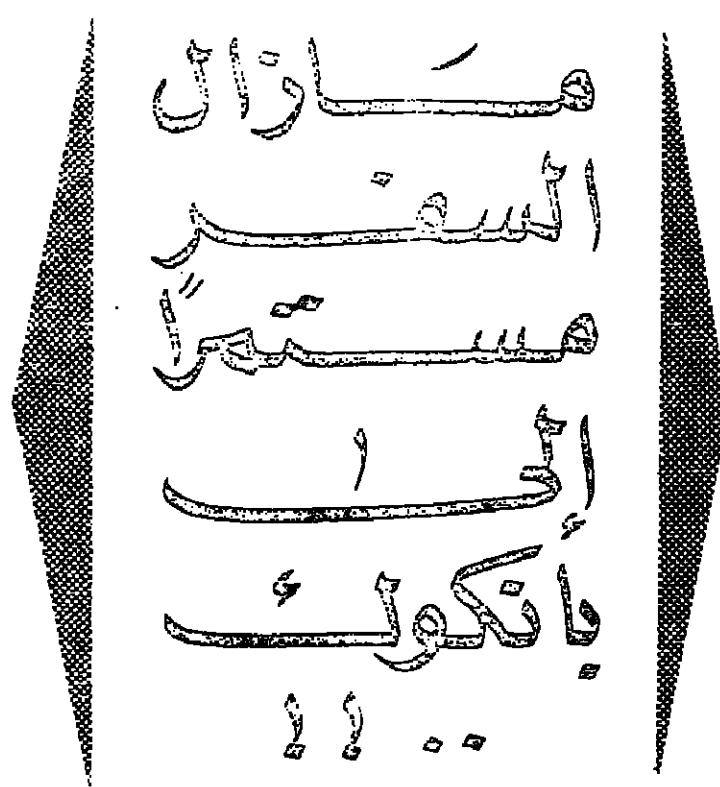 مَازال
السفر
مستمرًا
إلى
بانكوك
..!!